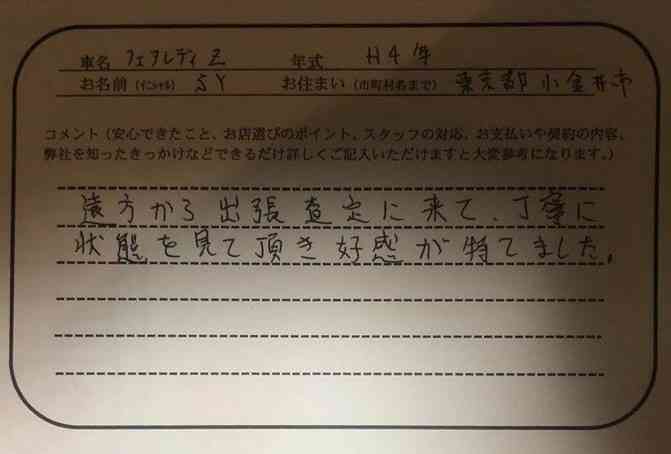 車名 フェアレディZ 年式 H4年
お名前(イニシャル) SY お住まい(市町村名まで) 東京都小金井市
コメント(安心できたこと、お店選びのポイント、スタッフの対応、お支払いや契約の内容、
弊社を知ったきっかけなどできるだけ詳しくご記入いただけますと大変参考になります。)
遠方から出張査定に来て、丁寧に
状態を見て頂き好感が持てました。